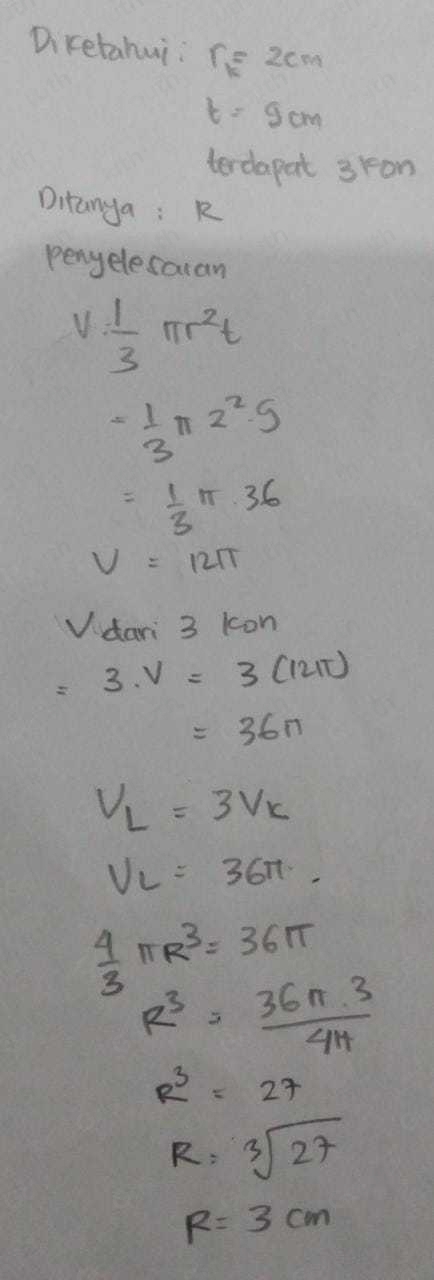 Diketahui : r_k = 2cm
t = 9cm
terdapat 3 kon
Ditanya : R
penyelesaian
V = 1/3 πr²t
= 1/3 π 2².9
= 1/3 π . 36
V = 12π
V dari 3 kon
= 3.V = 3 (12π)
= 36π
V_L = 3V_K
V_L = 36π.
4/3 πR³ = 36π
R³ = 36π.3/4π
R³ = 27
R = ³√27
R = 3 cm